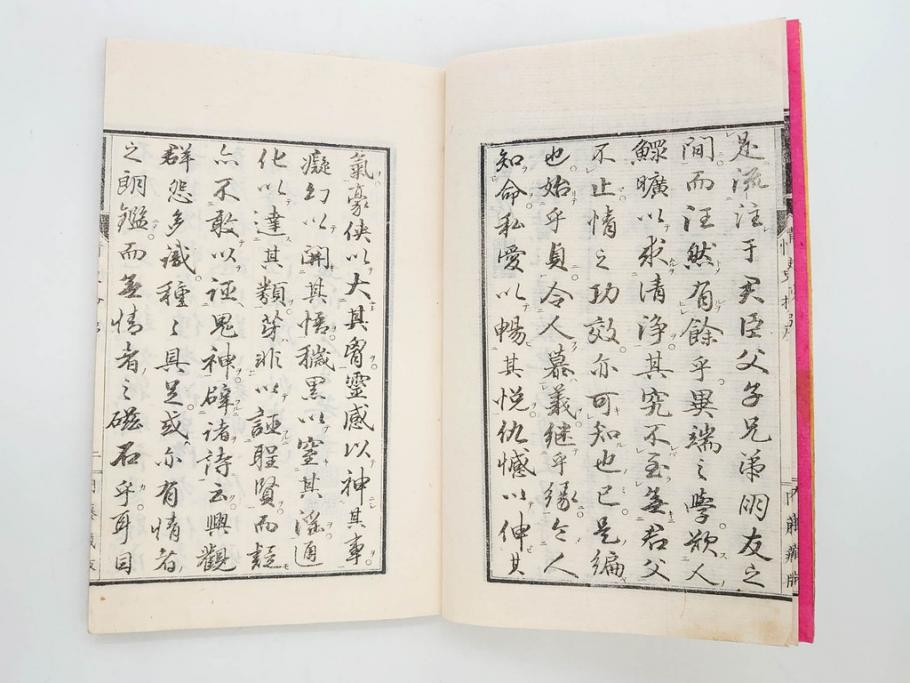 是流注于君臣父子兄弟朋友之
間而汪然有餘乎異端之學欲人
鰥曠以求清浄其究不至無君父
不止情之功效亦可知也已是編
也始乎貞令人慕義継乎縁令人
知命私愛以暢其悦仇憾以伸其
氣豪俠以大其胷靈感以神其事
癡幻以開其悟穢累以窒其淫通
化以達其類芽非以誣聖賢而疑
亦不敢以誣鬼神辟諸詩云興觀
群怨多識種々具足或亦有情者
之朗鑑而無情者之磁石乎耳目